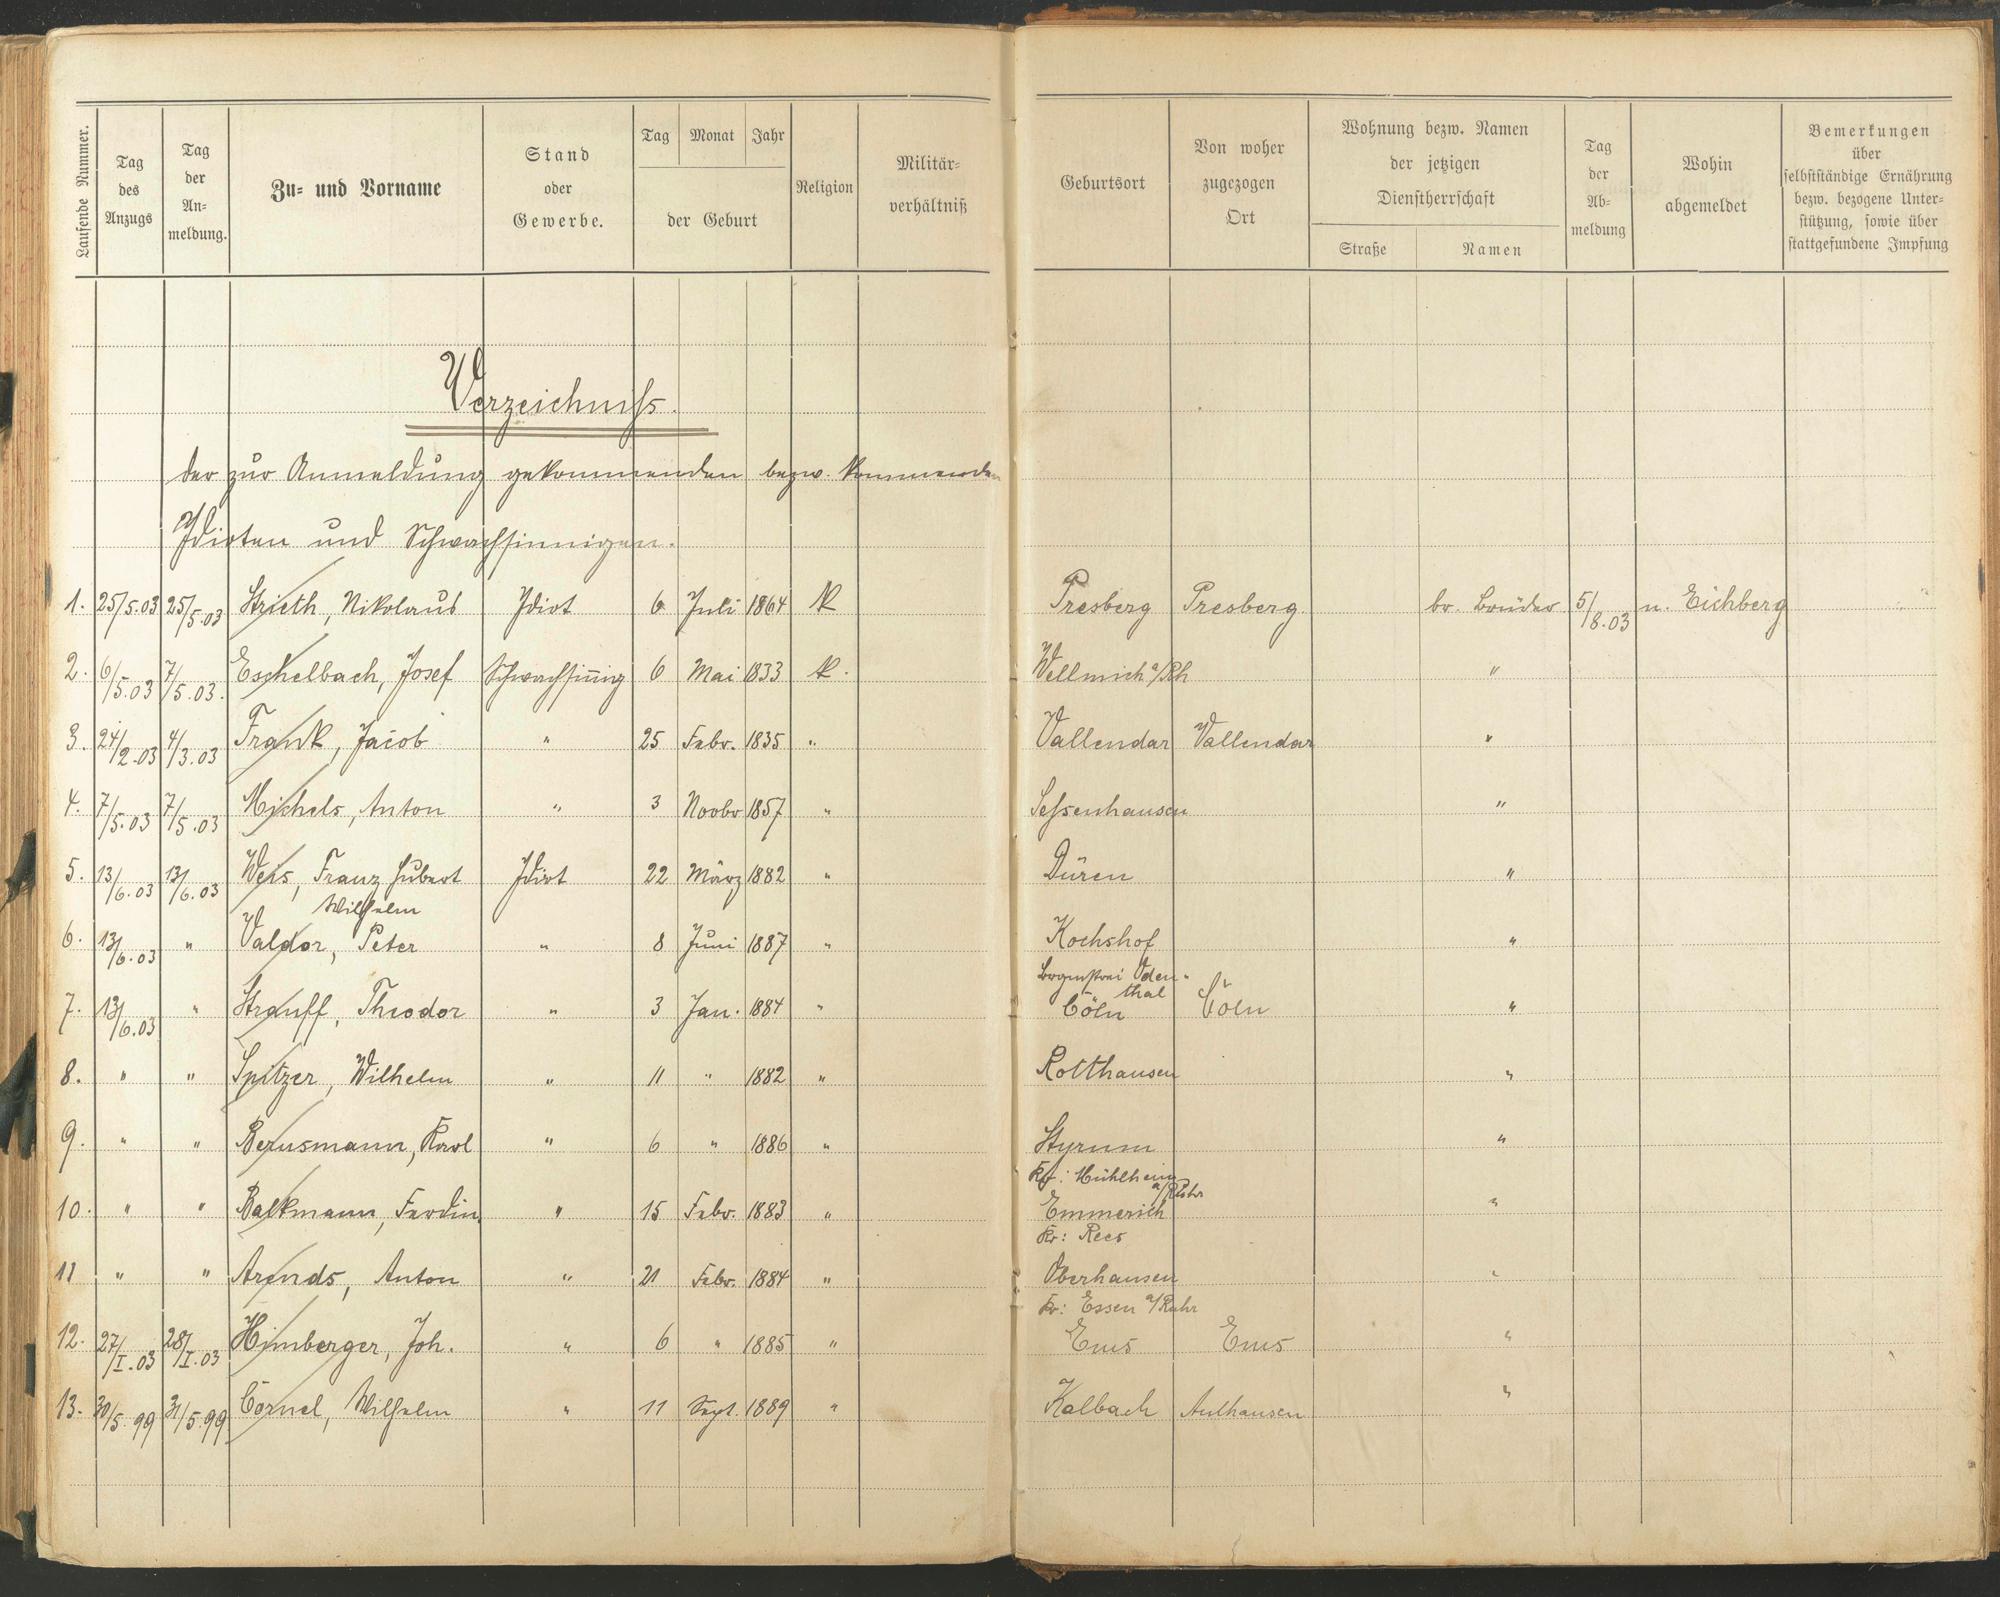 Laufende Nummer. Tag des Anzugs Tag der An-meldung. Zu- und Vorname Stand oder Gewerbe. Tag Monat Jahr der Geburt Religion Militär-verhältniß
Geburtsort Von woher zugezogen Ort Wohnung bezw. Namen der jetzigen Dienstherrschaft Straße Namen Tag der Ab-meldung Wohin abgemeldet Bemerkungen über selbstständige Ernährung bezw. bezogene Unter-stützung, sowie über stattgefundene Impfung
Verzeichniss.
der zur Anmeldung gekommenden bezw. kommenden
Idioten und Schwachsinnigen.
1. 25/5.03 25/5.03 Strieth, Nikolaus Idiot 6 Juli 1864 K Presberg Presberg br. Brüder 5/8.03 n. Eichberg
2. 6/5.03 7/5.03. Eschelbach, Josef Schwachsinnig 6 Mai 1833 K. Wellmich a/Rh "
3. 24/2.03 4/3.03 Frank, Jacob " 25 Febr. 1835 " Vallendar Vallendar "
4. 7/5.03 7/5.03 Michels, Anton " 3 Novbr 1857 " Sessenhausen "
5. 13/6.03 13/6.03 Weis, Franz Hubert Idiot 22 März 1882 " Düren "
Wilhelm
6. 13/6.03 " Valdor, Peter " 8 Juni 1887 " Kochshof "
Oden-
thal
7. 13/6.03 " Strauff, Theodor " 3 Jan. 1884 " Cöln Cöln "
8. " " Spitzer, Wilhelm " 11 " 1882 " Rotthausen "
9. " " Berusmann, Karl " 6 " 1886 " Styrum "
Kr: Mühlheim
a/Ruhr
10. " " Balkmann, Ferdin. " 15 Febr. 1883 " Emmerich "
Kr: Rees
11 " " Arends, Anton " 21 Febr. 1884 " Oberhausen "
Kr: Essen a/Ruhr
12. 27/I.03 28/I.03 Himberger, Joh. " 6 " 1885 " Ems Ems "
13. 30/5.99 31/5.99 Cornel, Wilhelm " 11 Sept. 1889 " Kalbach Aulhausen "